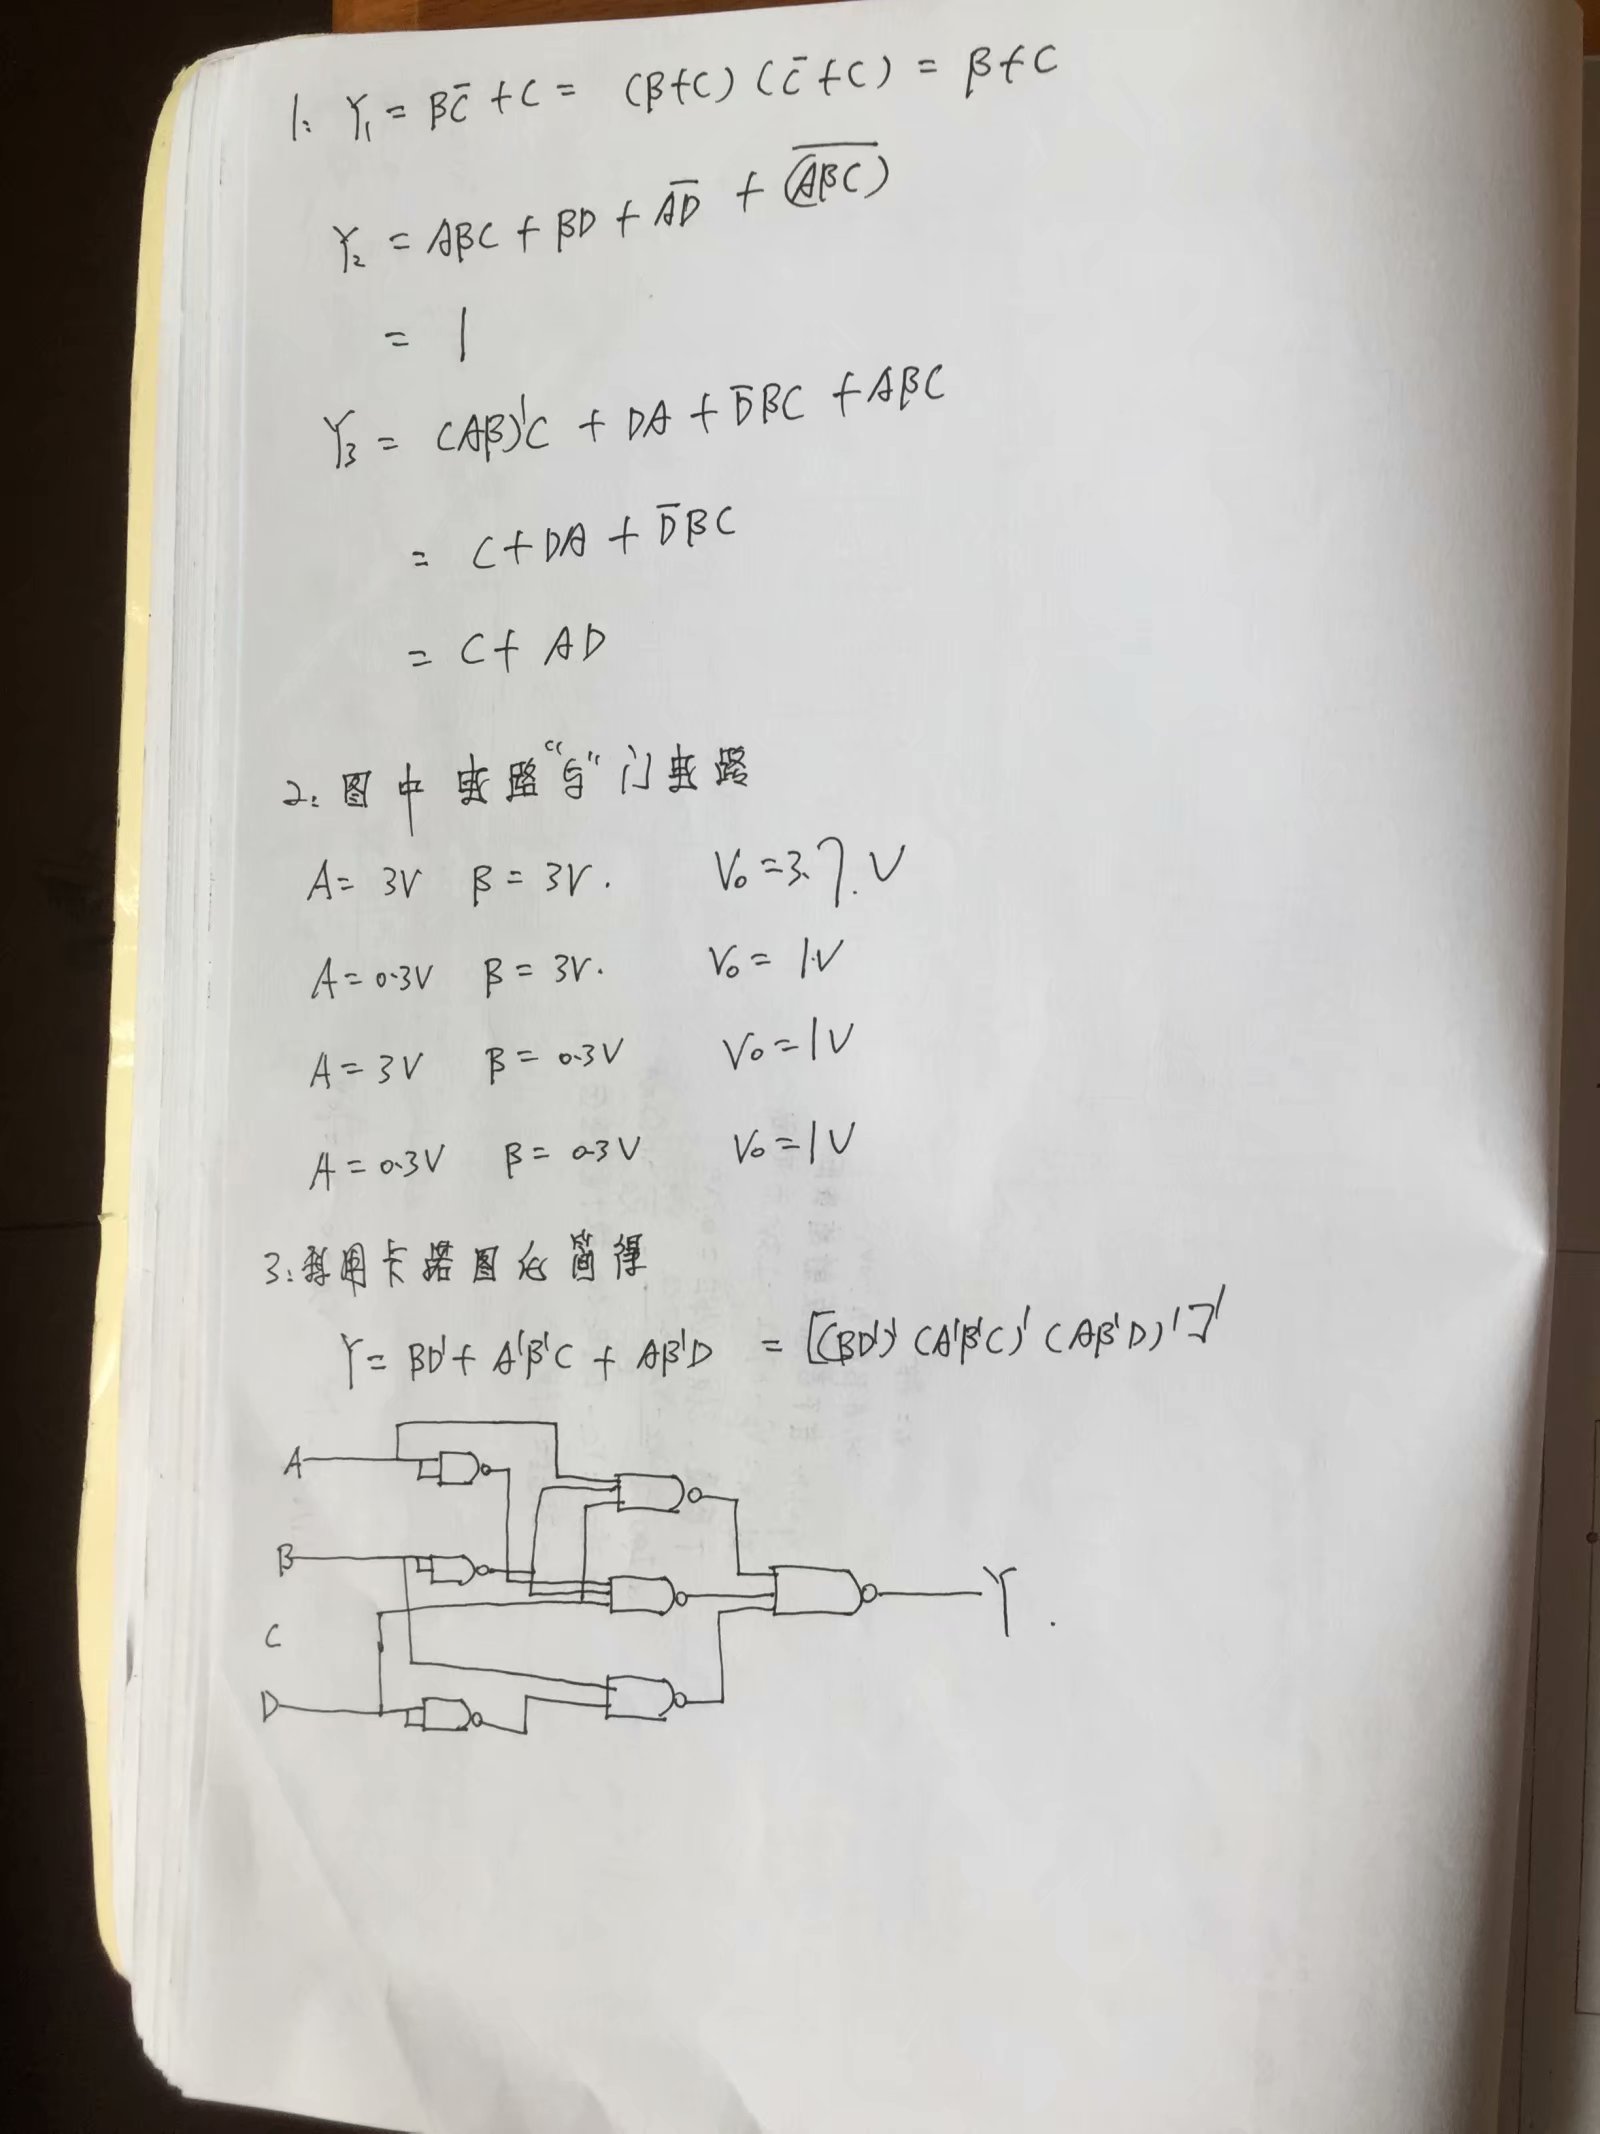 1: Y₁ = BC̄ + C = (B+C)(C̄+C) = B+C
Y₂ = ABC + BD + AD̄ + \overline{(ABC)}
= 1
Y₃ = (AB)'C + DA + D̄BC + ABC
= C + DA + D̄BC
= C + AD
2: 图中电路“与”门电路
A = 3V B = 3V. V₀ = 3.7.V
A = 0.3V B = 3V. V₀ = 1V
A = 3V B = 0.3V V₀ = 1V
A = 0.3V B = 0.3V V₀ = 1V
3: 利用卡诺图化简得
Y = BD' + A'B'C + AB'D = [(BD')'(A'B'C)'(AB'D)']'
A
B
Y.
C
D